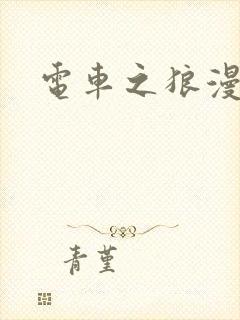 電車之狼漫
青堇